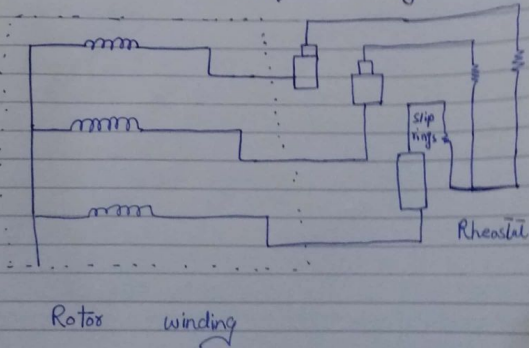 slip
rings
Rheostat
Rotor winding